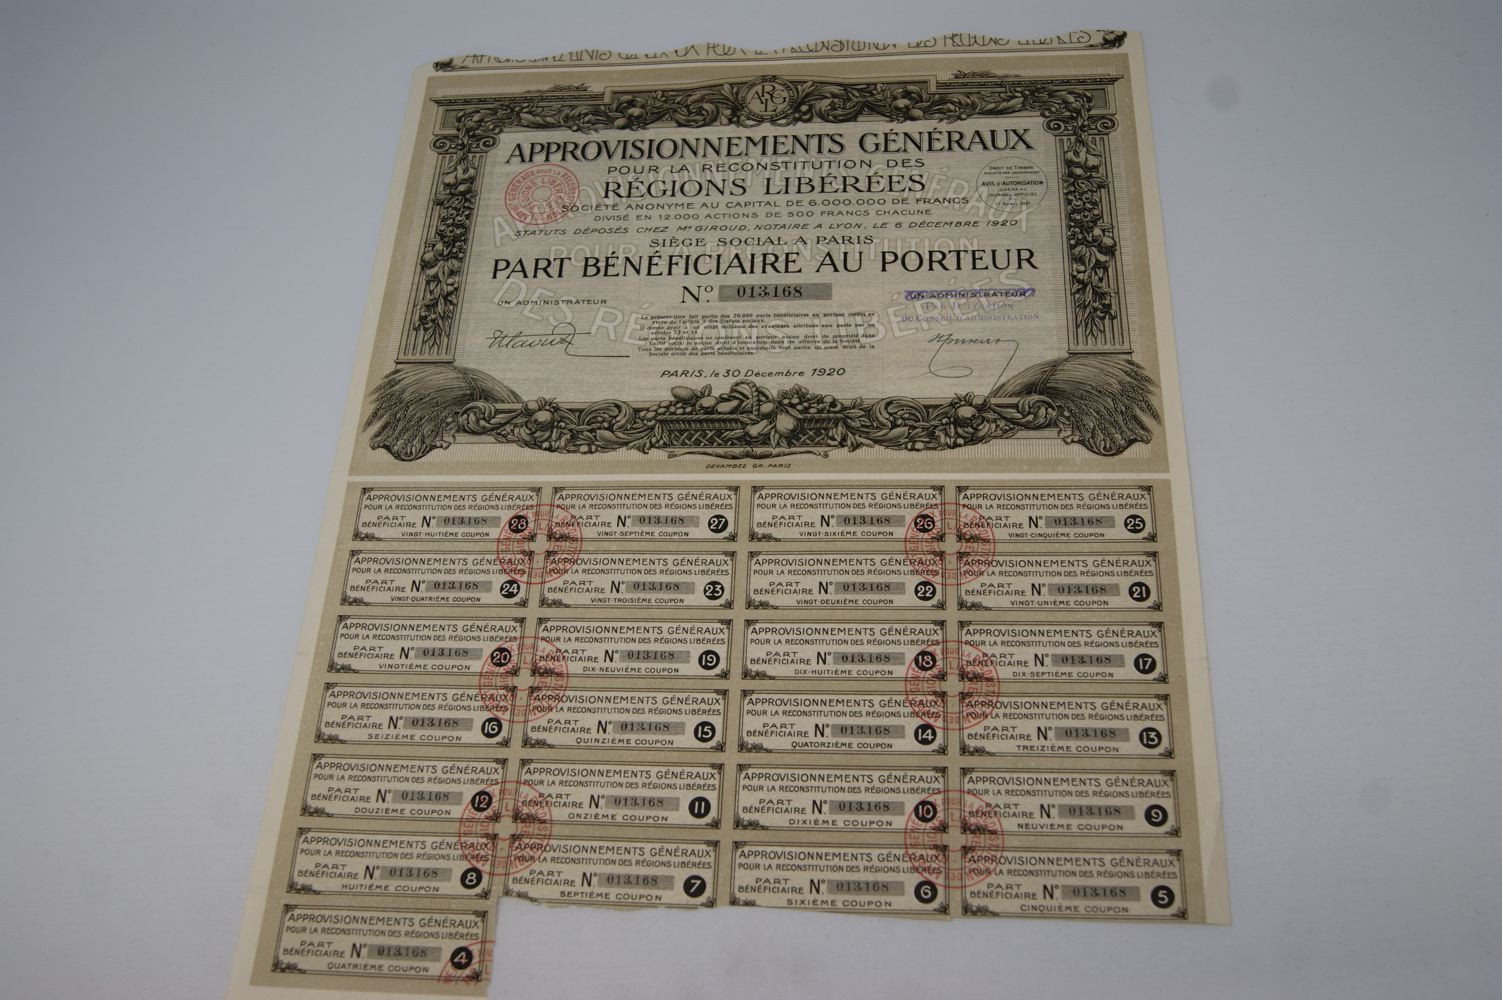 ARLG
APPROVISIONNEMENTS GÉNÉRAUX
POUR LA RECONSTITUTION DES
RÉGIONS LIBÉRÉES
SOCIÉTÉ ANONYME AU CAPITAL DE 6.000.000 DE FRANCS
DIVISÉ EN 12.000 ACTIONS DE 500 FRANCS CHACUNE
STATUTS DÉPOSÉS CHEZ Me GIROUD, NOTAIRE A LYON, LE 6 DÉCEMBRE 1920
SIÈGE SOCIAL A PARIS
DROIT DE TIMBRE
AVIS D'AUTORISATION
JOURNAL OFFICIEL
PART BÉNÉFICIAIRE AU PORTEUR
No. 013.168
UN ADMINISTRATEUR
UN ADMINISTRATEUR
PAR DÉLÉGATION
DU CONSEIL D'ADMINISTRATION
Le présent titre fait partie des 20.000 parts bénéficiaires au porteur créées en
vertu de l'article 9 des Statuts sociaux.
PARIS, le 30 Décembre 1920
DEVAMBEZ GR. PARIS
APPROVISIONNEMENTS GÉNÉRAUX
POUR LA RECONSTITUTION DES RÉGIONS LIBÉRÉES
PART BÉNÉFICIAIRE No 013.168 28
VINGT-HUITIÈME COUPON
APPROVISIONNEMENTS GÉNÉRAUX
POUR LA RECONSTITUTION DES RÉGIONS LIBÉRÉES
PART BÉNÉFICIAIRE No 013.168 27
VINGT-SEPTIÈME COUPON
APPROVISIONNEMENTS GÉNÉRAUX
POUR LA RECONSTITUTION DES RÉGIONS LIBÉRÉES
PART BÉNÉFICIAIRE No 013.168 26
VINGT-SIXIÈME COUPON
APPROVISIONNEMENTS GÉNÉRAUX
POUR LA RECONSTITUTION DES RÉGIONS LIBÉRÉES
PART BÉNÉFICIAIRE No 013.168 25
VINGT-CINQUIÈME COUPON
APPROVISIONNEMENTS GÉNÉRAUX
POUR LA RECONSTITUTION DES RÉGIONS LIBÉRÉES
PART BÉNÉFICIAIRE No 013.168 24
VINGT-QUATRIÈME COUPON
APPROVISIONNEMENTS GÉNÉRAUX
POUR LA RECONSTITUTION DES RÉGIONS LIBÉRÉES
PART BÉNÉFICIAIRE No 013.168 23
VINGT-TROISIÈME COUPON
APPROVISIONNEMENTS GÉNÉRAUX
POUR LA RECONSTITUTION DES RÉGIONS LIBÉRÉES
PART BÉNÉFICIAIRE No 013.168 22
VINGT-DEUXIÈME COUPON
APPROVISIONNEMENTS GÉNÉRAUX
POUR LA RECONSTITUTION DES RÉGIONS LIBÉRÉES
PART BÉNÉFICIAIRE No 013.168 21
VINGT-UNIÈME COUPON
APPROVISIONNEMENTS GÉNÉRAUX
POUR LA RECONSTITUTION DES RÉGIONS LIBÉRÉES
PART BÉNÉFICIAIRE No 013.168 20
VINGTIÈME COUPON
APPROVISIONNEMENTS GÉNÉRAUX
POUR LA RECONSTITUTION DES RÉGIONS LIBÉRÉES
PART BÉNÉFICIAIRE No 013.168 19
DIX-NEUVIÈME COUPON
APPROVISIONNEMENTS GÉNÉRAUX
POUR LA RECONSTITUTION DES RÉGIONS LIBÉRÉES
PART BÉNÉFICIAIRE No 013.168 18
DIX-HUITIÈME COUPON
APPROVISIONNEMENTS GÉNÉRAUX
POUR LA RECONSTITUTION DES RÉGIONS LIBÉRÉES
PART BÉNÉFICIAIRE No 013.168 17
DIX-SEPTIÈME COUPON
APPROVISIONNEMENTS GÉNÉRAUX
POUR LA RECONSTITUTION DES RÉGIONS LIBÉRÉES
PART BÉNÉFICIAIRE No 013.168 16
SEIZIÈME COUPON
APPROVISIONNEMENTS GÉNÉRAUX
POUR LA RECONSTITUTION DES RÉGIONS LIBÉRÉES
PART BÉNÉFICIAIRE No 013.168 15
QUINZIÈME COUPON
APPROVISIONNEMENTS GÉNÉRAUX
POUR LA RECONSTITUTION DES RÉGIONS LIBÉRÉES
PART BÉNÉFICIAIRE No 013.168 14
QUATORZIÈME COUPON
APPROVISIONNEMENTS GÉNÉRAUX
POUR LA RECONSTITUTION DES RÉGIONS LIBÉRÉES
PART BÉNÉFICIAIRE No 013.168 13
TREIZIÈME COUPON
APPROVISIONNEMENTS GÉNÉRAUX
POUR LA RECONSTITUTION DES RÉGIONS LIBÉRÉES
PART BÉNÉFICIAIRE No 013.168 12
DOUZIÈME COUPON
APPROVISIONNEMENTS GÉNÉRAUX
POUR LA RECONSTITUTION DES RÉGIONS LIBÉRÉES
PART BÉNÉFICIAIRE No 013.168 11
ONZIÈME COUPON
APPROVISIONNEMENTS GÉNÉRAUX
POUR LA RECONSTITUTION DES RÉGIONS LIBÉRÉES
PART BÉNÉFICIAIRE No 013.168 10
DIXIÈME COUPON
APPROVISIONNEMENTS GÉNÉRAUX
POUR LA RECONSTITUTION DES RÉGIONS LIBÉRÉES
PART BÉNÉFICIAIRE No 013.168 9
NEUVIÈME COUPON
APPROVISIONNEMENTS GÉNÉRAUX
POUR LA RECONSTITUTION DES RÉGIONS LIBÉRÉES
PART BÉNÉFICIAIRE No 013.168 8
HUITIÈME COUPON
APPROVISIONNEMENTS GÉNÉRAUX
POUR LA RECONSTITUTION DES RÉGIONS LIBÉRÉES
PART BÉNÉFICIAIRE No 013.168 7
SEPTIÈME COUPON
APPROVISIONNEMENTS GÉNÉRAUX
POUR LA RECONSTITUTION DES RÉGIONS LIBÉRÉES
PART BÉNÉFICIAIRE No 013.168 6
SIXIÈME COUPON
APPROVISIONNEMENTS GÉNÉRAUX
POUR LA RECONSTITUTION DES RÉGIONS LIBÉRÉES
PART BÉNÉFICIAIRE No 013.168 5
CINQUIÈME COUPON
APPROVISIONNEMENTS GÉNÉRAUX
POUR LA RECONSTITUTION DES RÉGIONS LIBÉRÉES
PART BÉNÉFICIAIRE No 013.168 4
QUATRIÈME COUPON